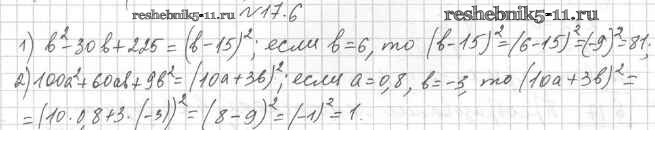 reshebnik5-11.ru №17.6 reshebnik5-11.ru
1) b²-30b+225=(b-15)²; если b=6, то (b-15)²=(6-15)²=(-9)²=81;
2) 100a²+60ab+9b²=(10a+3b)²; если a=0,8, b=-3, то (10a+3b)²=
=(10·0,8+3·(-3))²=(8-9)²=(-1)²=1.